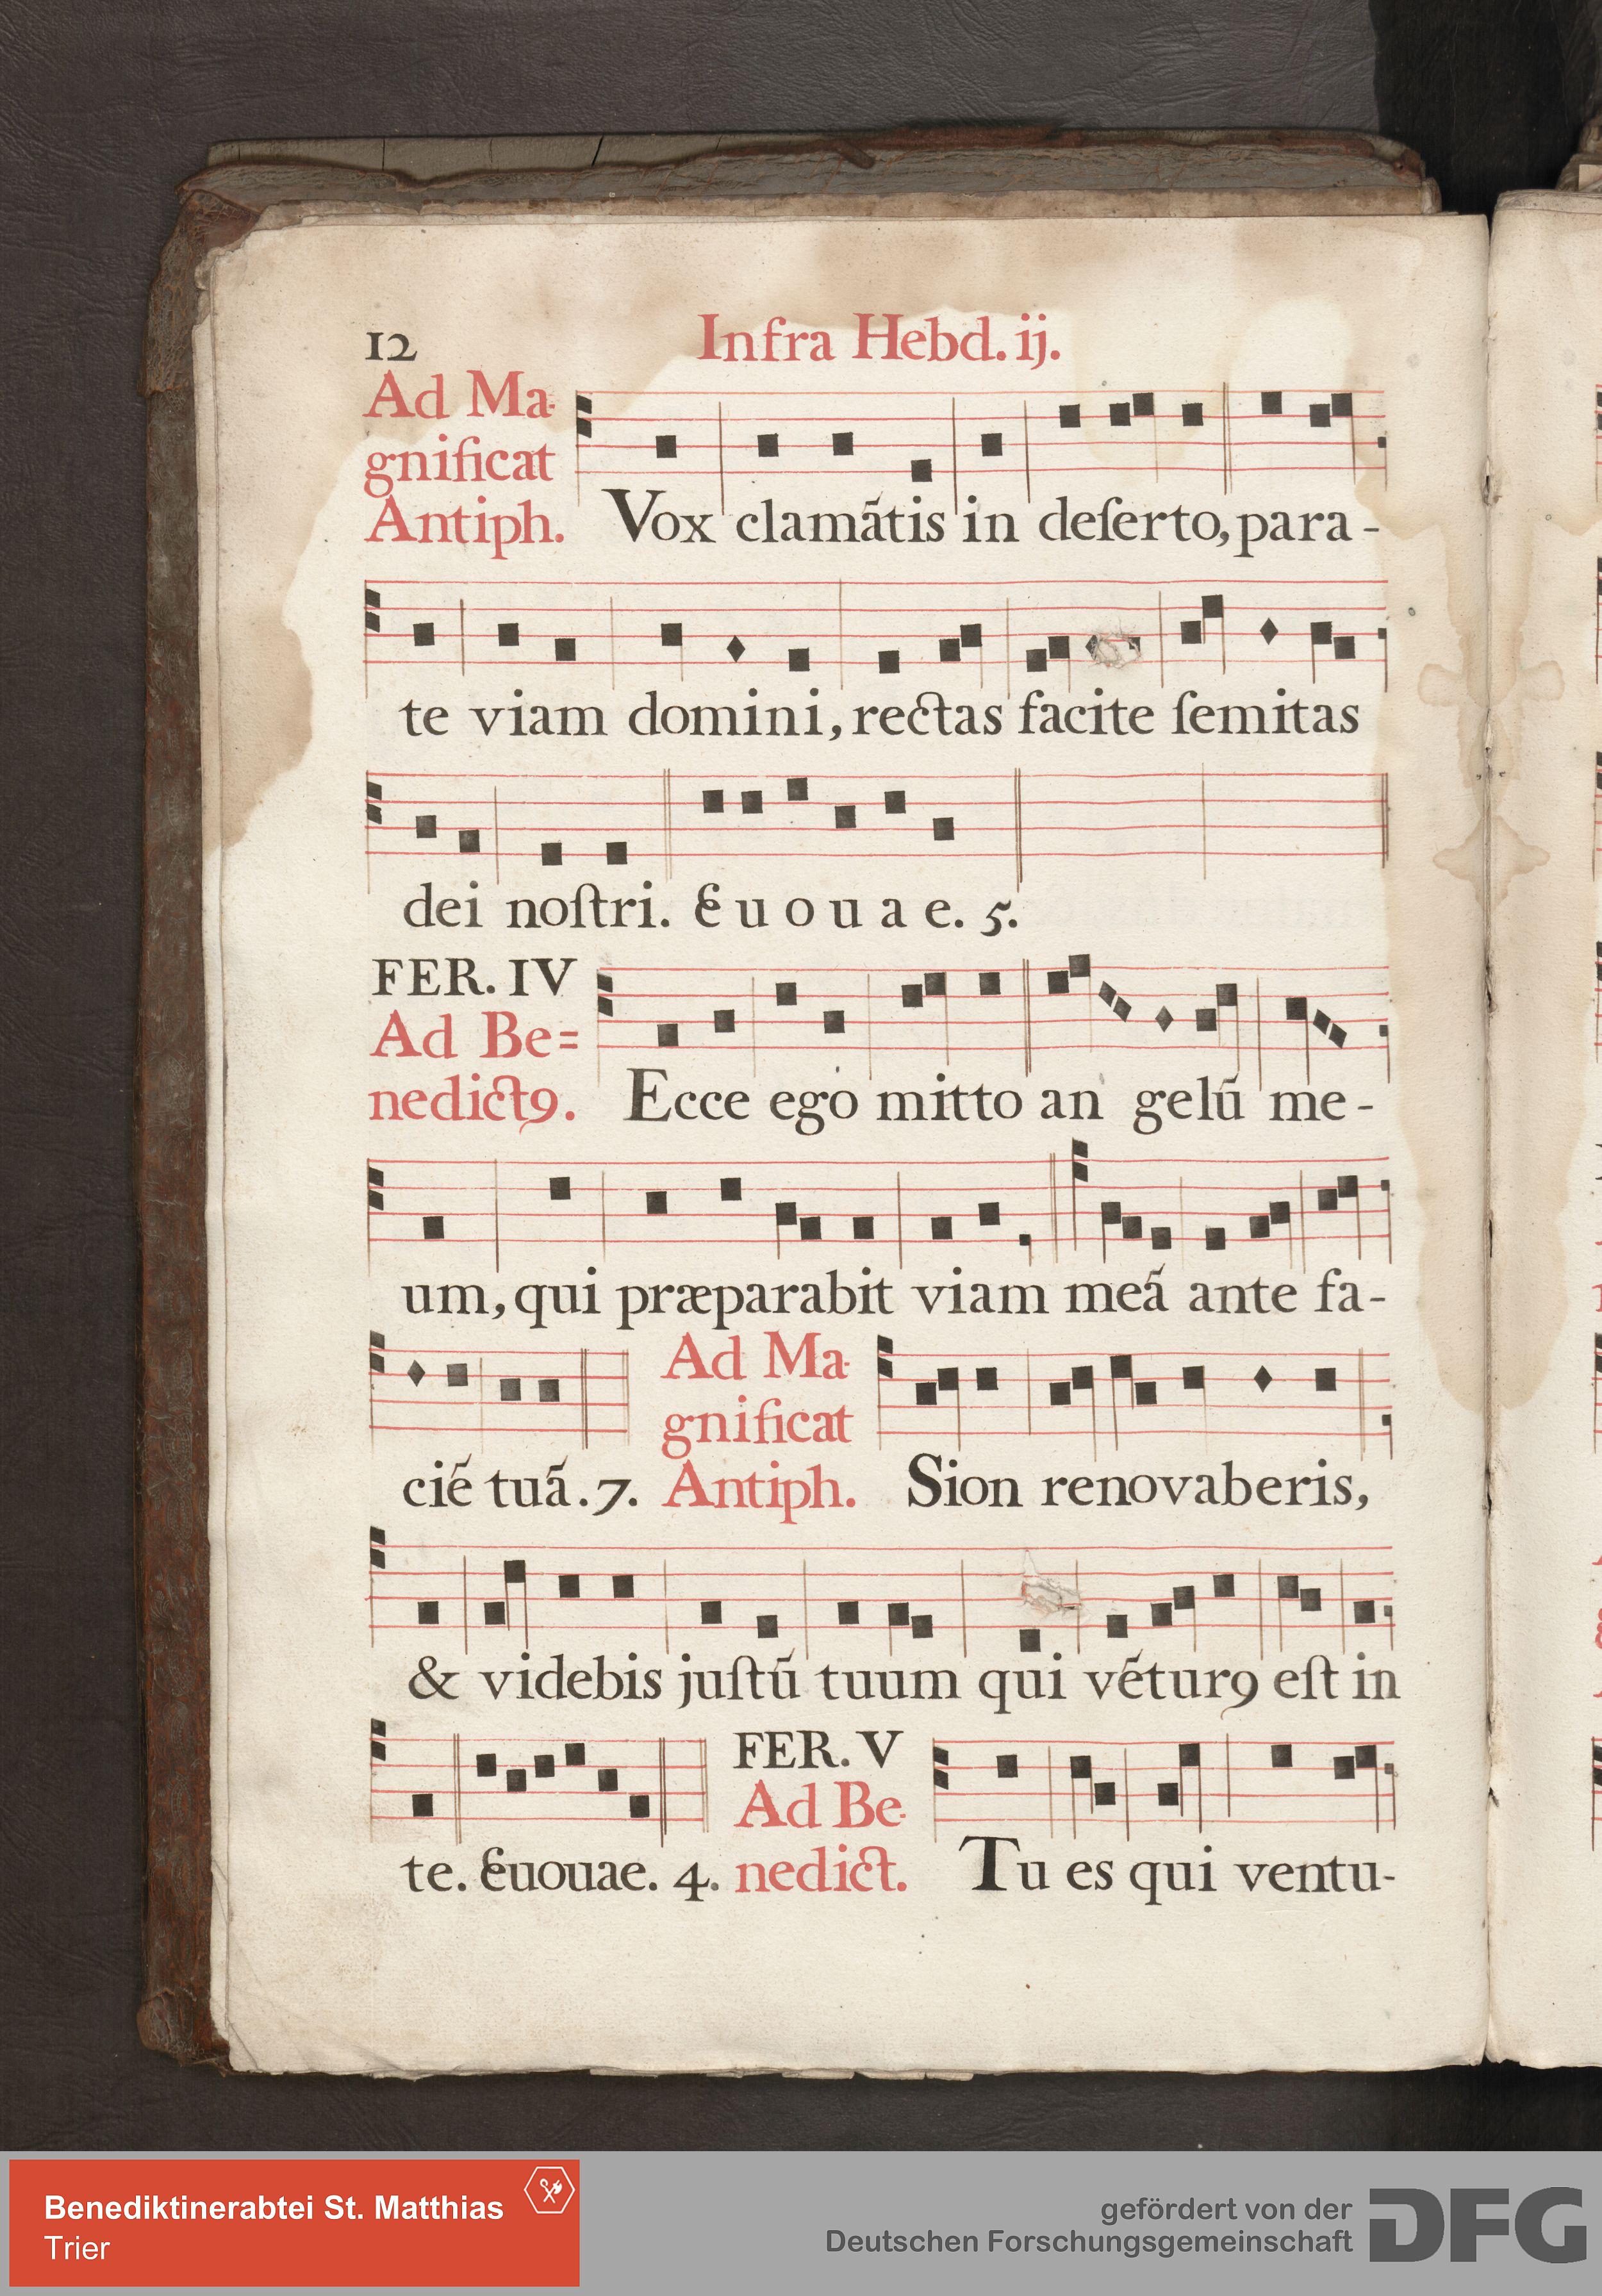 12 Infra Hebd. ij.
Ad Ma-
gnificat
Antiph. Vox clamãtis in deſerto, para-
te viam domini, rectas facite ſemitas
dei noſtri. Euouae. 5.
FER. IV
Ad Be=
nedict9. Ecce ego mitto an gelũ me-
um, qui præparabit viam meã ante fa-
ciẽ tuã. 7.
Ad Ma-
gnificat
Antiph. Sion renovaberis,
& videbis juſtũ tuum qui vẽtur9 eſt in
te. Euouae. 4.
FER. V
Ad Be-
nedict. Tu es qui ventu-
Benediktinerabtei St. Matthias
Trier
gefördert von der
Deutschen Forschungsgemeinschaft
DFG